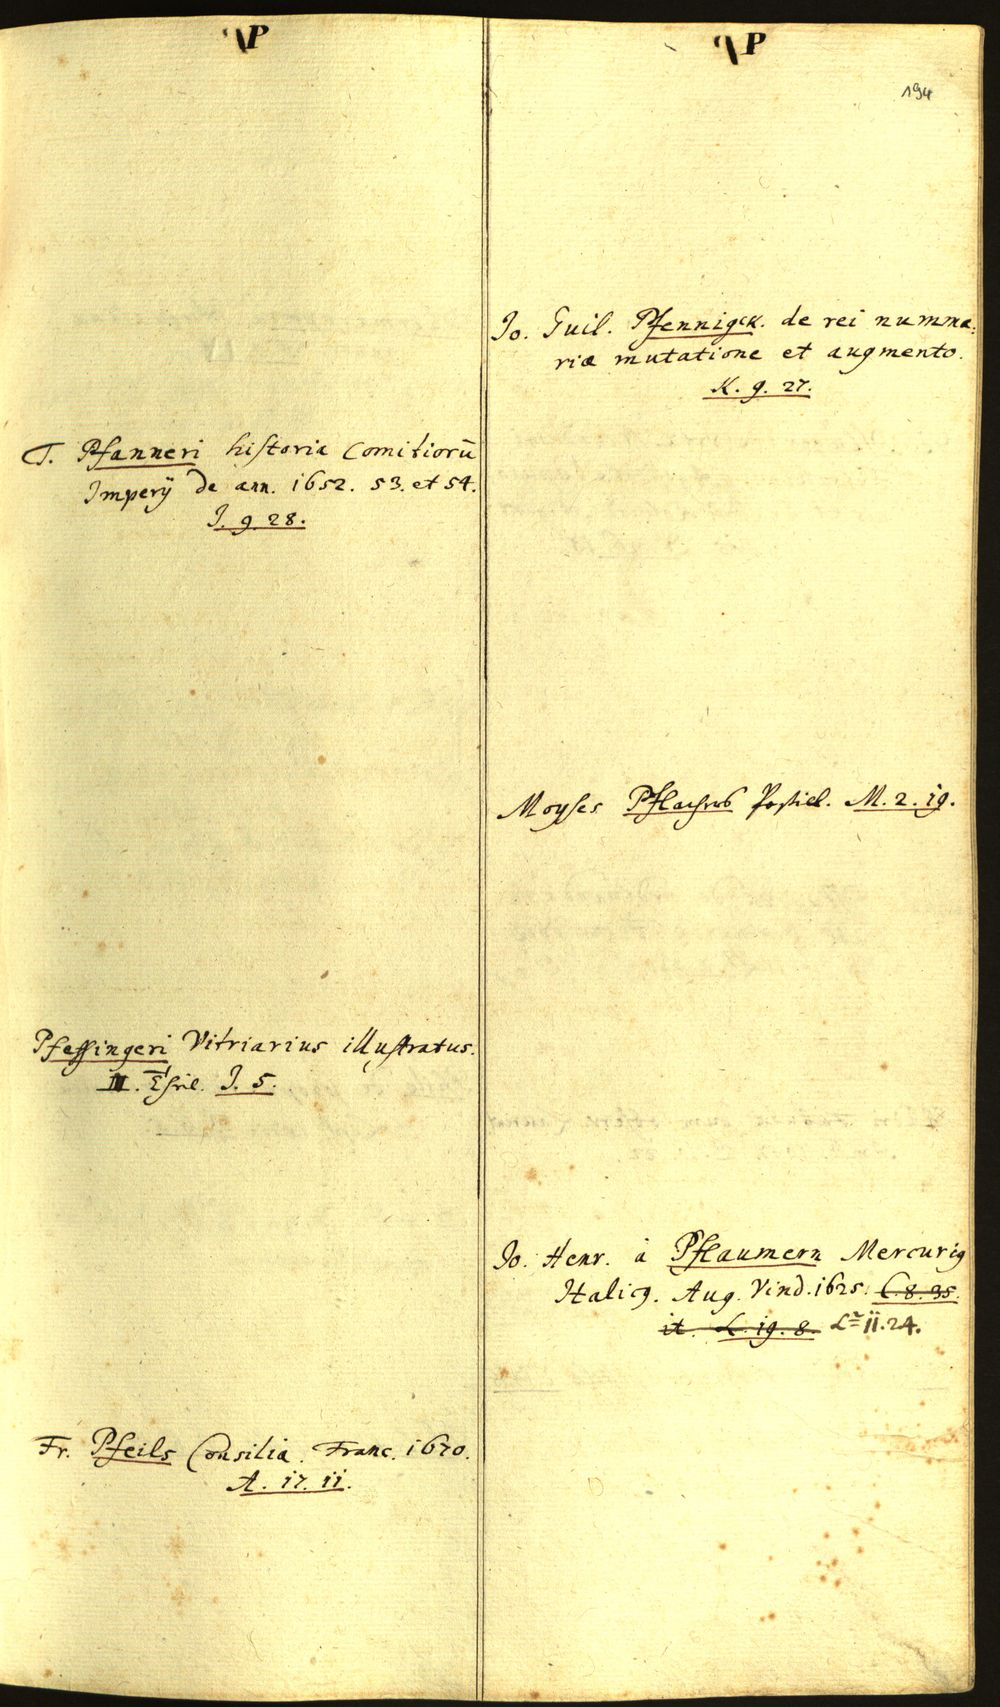 P
T. Pfanneri historia Comitiorū
Imperij de ann. 1652. 53. et 54.
J. 9. 28.
Pfeffingeri Vitriarius illustratus.
III. Theil. J. 5.
Fr. Pfeils Consilia. Franc. 1670.
A. 17. 11.
P
194
Jo. Guil. Pfennigck. de rei numma:
riæ mutatione et augmento.
K. 9. 27.
Moyses Pflachers Postill. M. 2. 19.
Jo. Henr. à Pflaumern Mercuriꝰ
Italicꝰ. Aug. Vind. 1625. C. 8. 35.
it. L. 19. 8. L 11. 24.